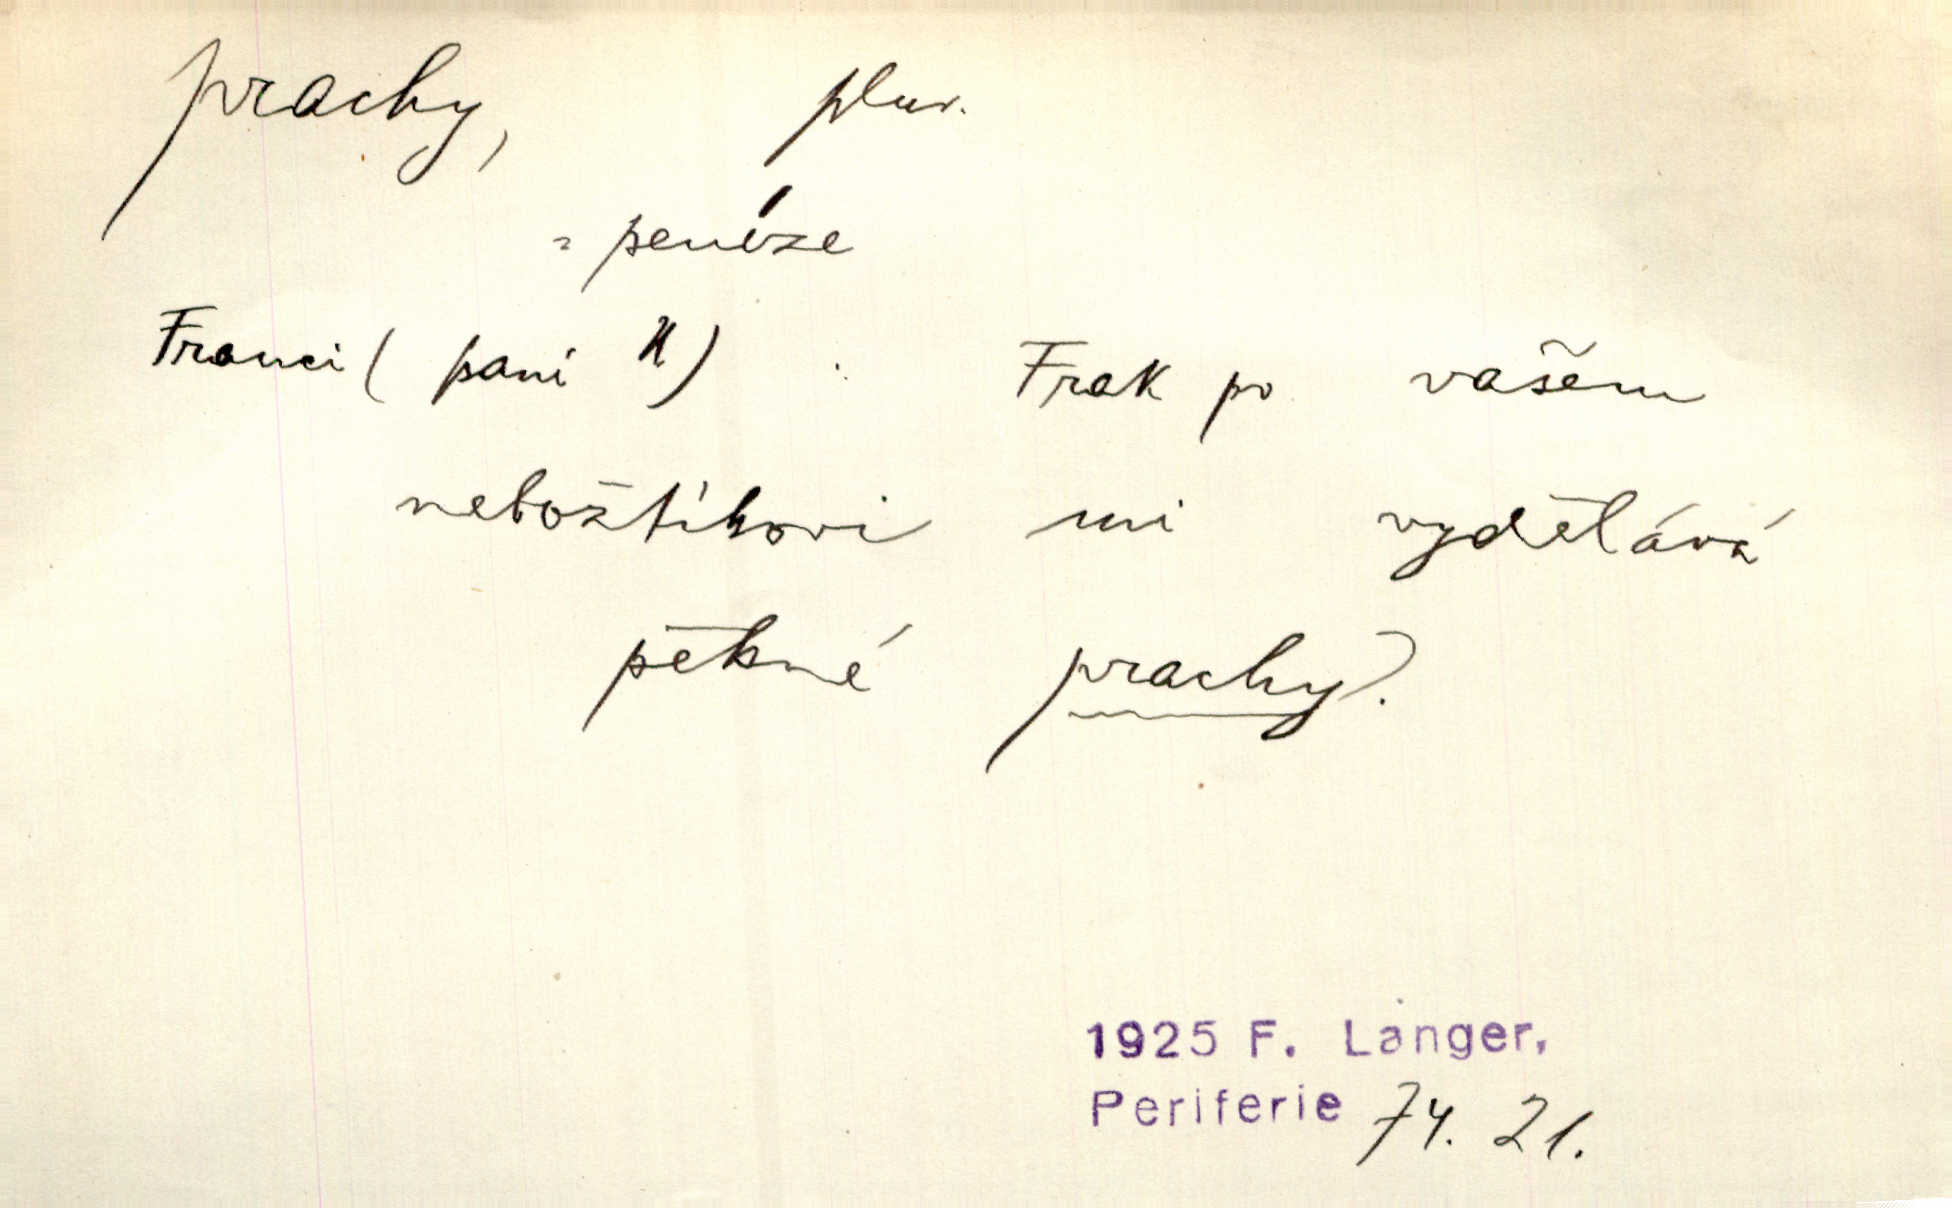 prachy, plur.
= peníze
Franci (paní H) : Frak po vašem
nebožtíkovi mi vydělává
pěkné prachy.
1925 F. Langer,
Periferie 74. 21.